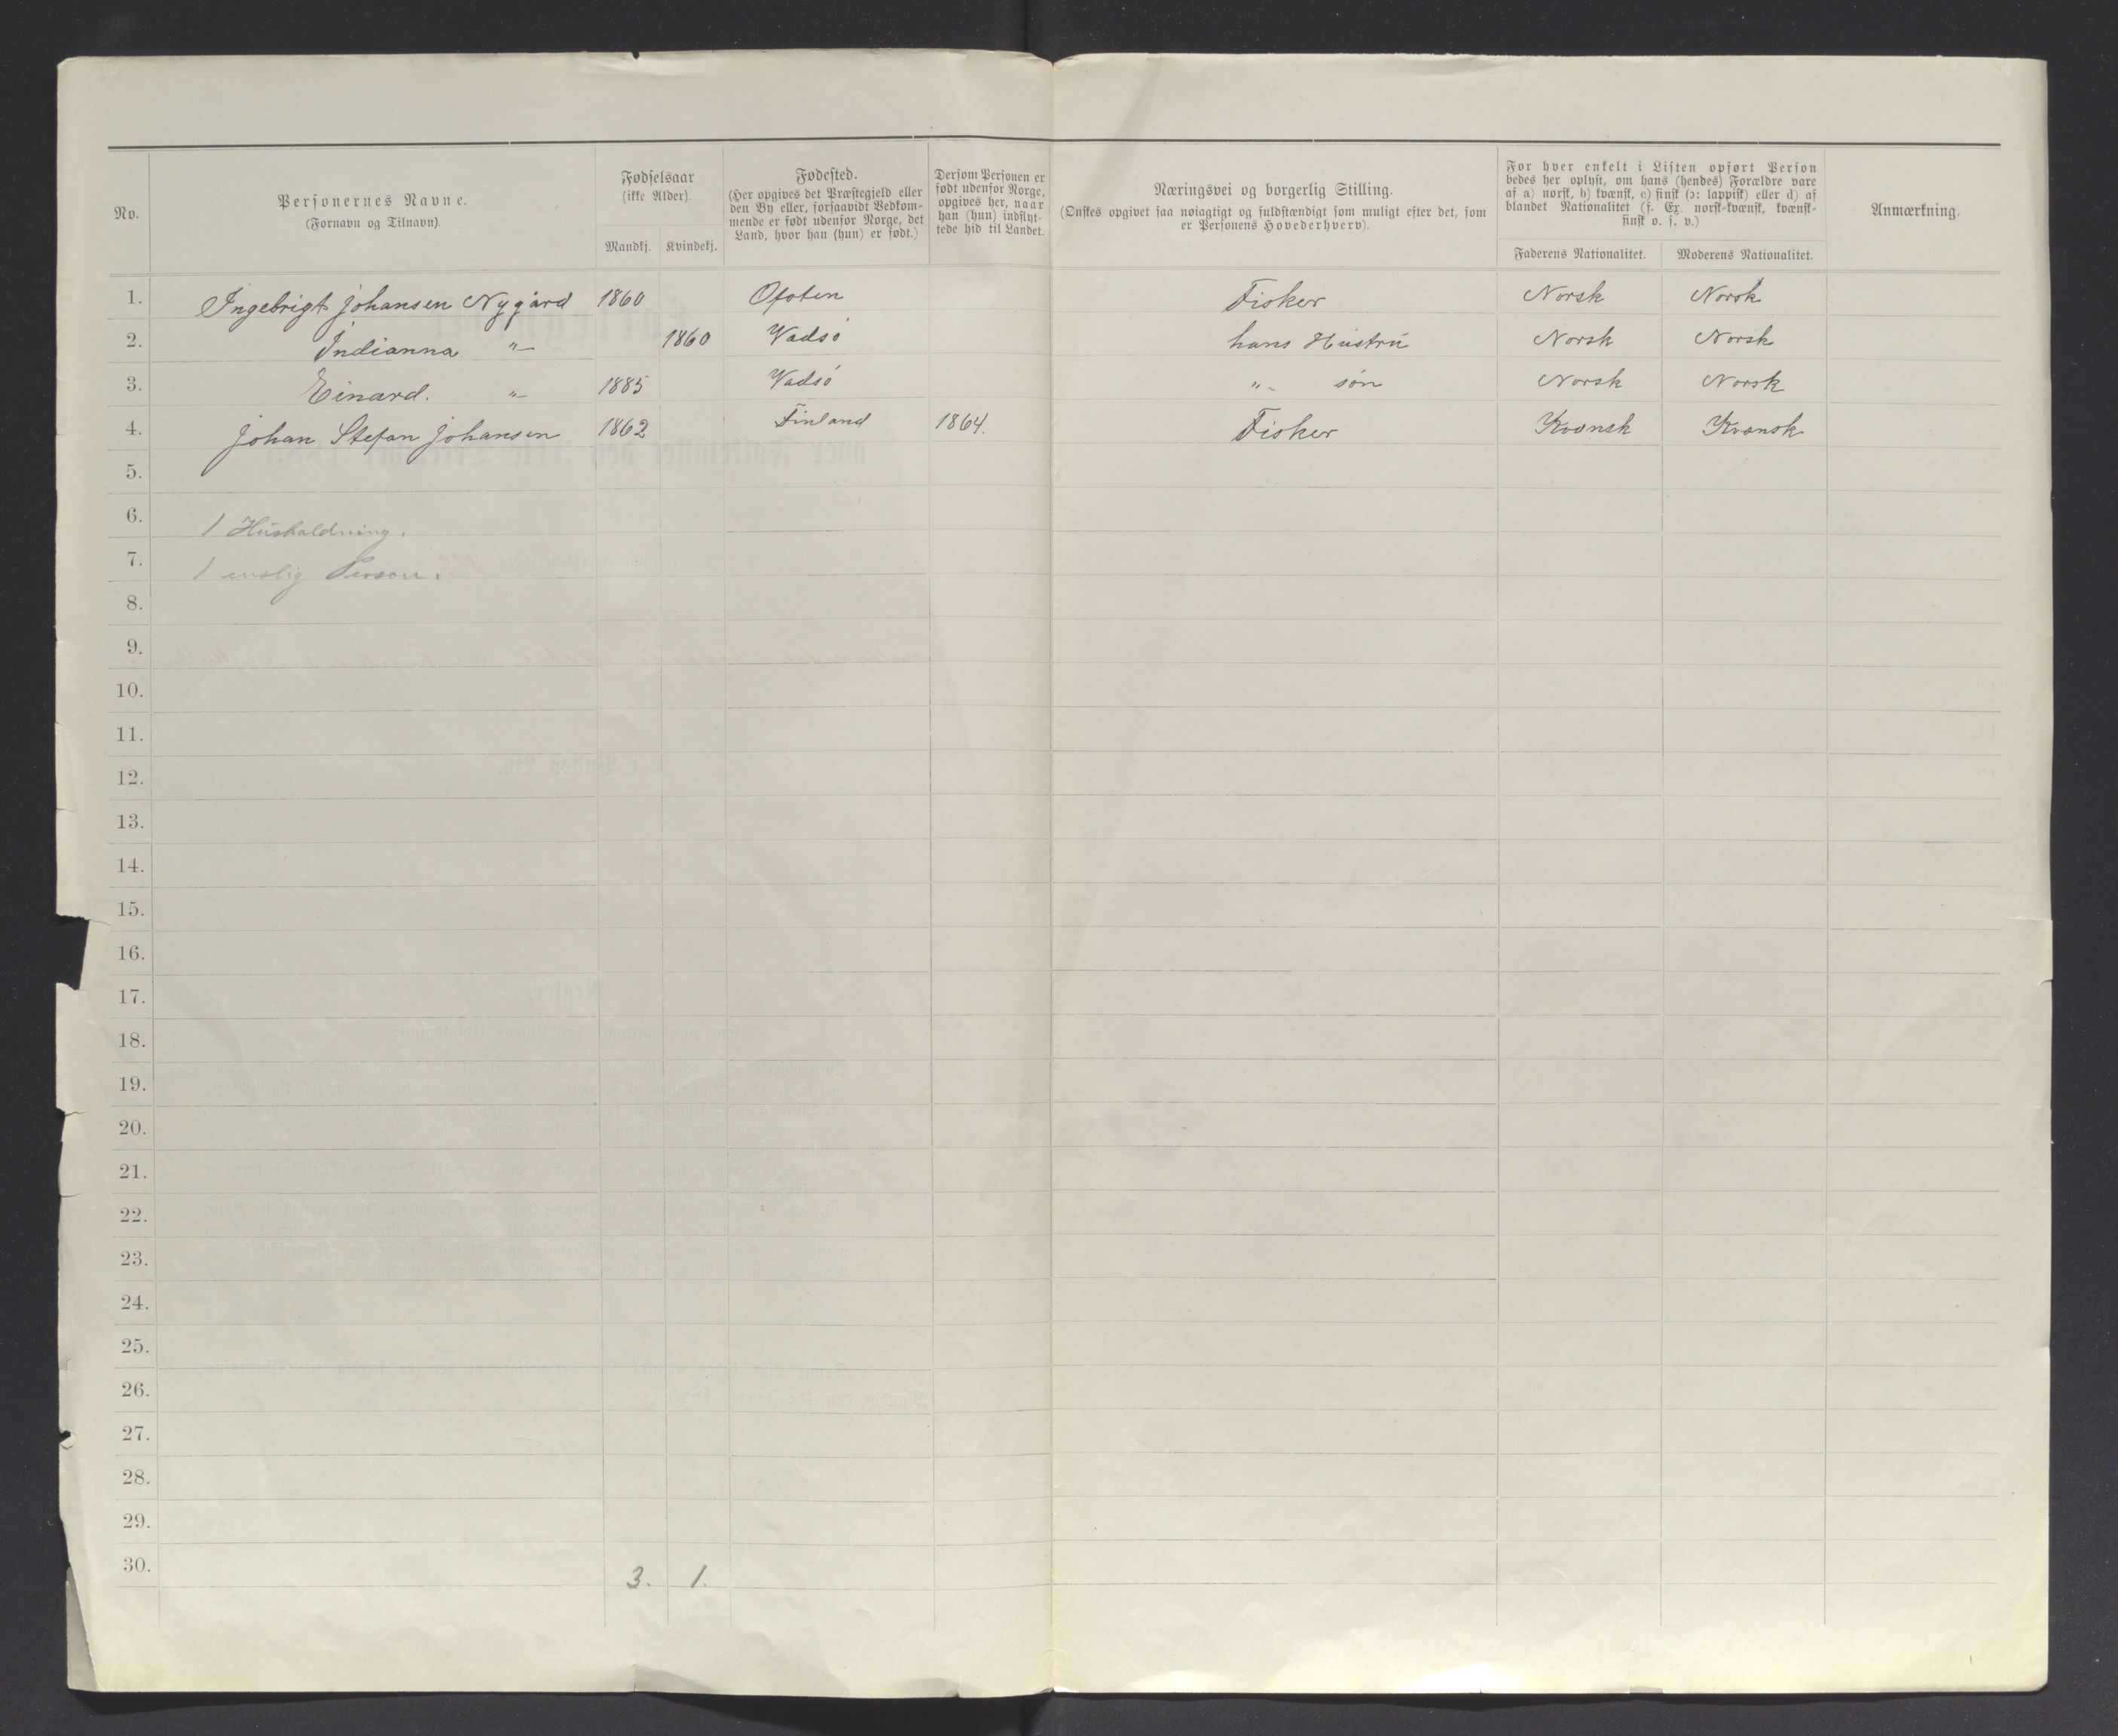 No.
Personernes Navne.
(Fornavn og Tilnavn).
Fødselsaar
(ikke Alder).
Mandkj. Kvindekj.
Fødested.
(Her opgives det Præstegjeld eller
den By eller, forsaavidt Vedkom-
mende er født udenfor Norge, det
Land, hvor han (hun) er født.)
Dersom Personen er
født udenfor Norge,
opgives her, naar
han (hun) indflyt-
tede hid til Landet.
Næringsvei og borgerlig Stilling.
(Ønskes opgivet saa nøiagtigt og fuldstændigt som muligt efter det, som
er Personens Hovederhverv).
For hver enkelt i Listen opført Person
bedes her oplyst, om hans (hendes) Forældre vare
af a) norsk, b) kvænsk, c) finsk (ɔ: lappisk) eller d) af
blandet Nationalitet (f. Ex. norsk-kvænsk, kvænsk-
finsk o. s. v.)
Faderens Nationalitet. Moderens Nationalitet.
Anmærkning.
1. Ingebrigt Johansen Nygård 1860 Ofoten Fisker Norsk Norsk
2. Indianna " 1860 Vadsö hans Hustru Norsk Norsk
3. Einard. " 1885 Vadsö " søn Norsk Norsk
4. Johan Stefan Johansen 1862 Finland 1864. Fisker Kvænsk Kvænsk
5.
6. 1 Husholdning.
7. 1 enslig Person.
8.
9.
10.
11.
12.
13.
14.
15.
16.
17.
18.
19.
20.
21.
22.
23.
24.
25.
26.
27.
28.
29.
30. 3. 1.